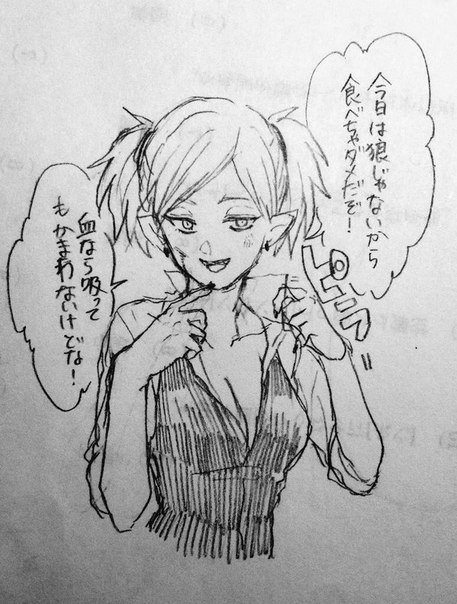 今日は狼じゃないから
食べちゃダメだぞ!
ピラ
血なら吸って
もかまわないけどな!